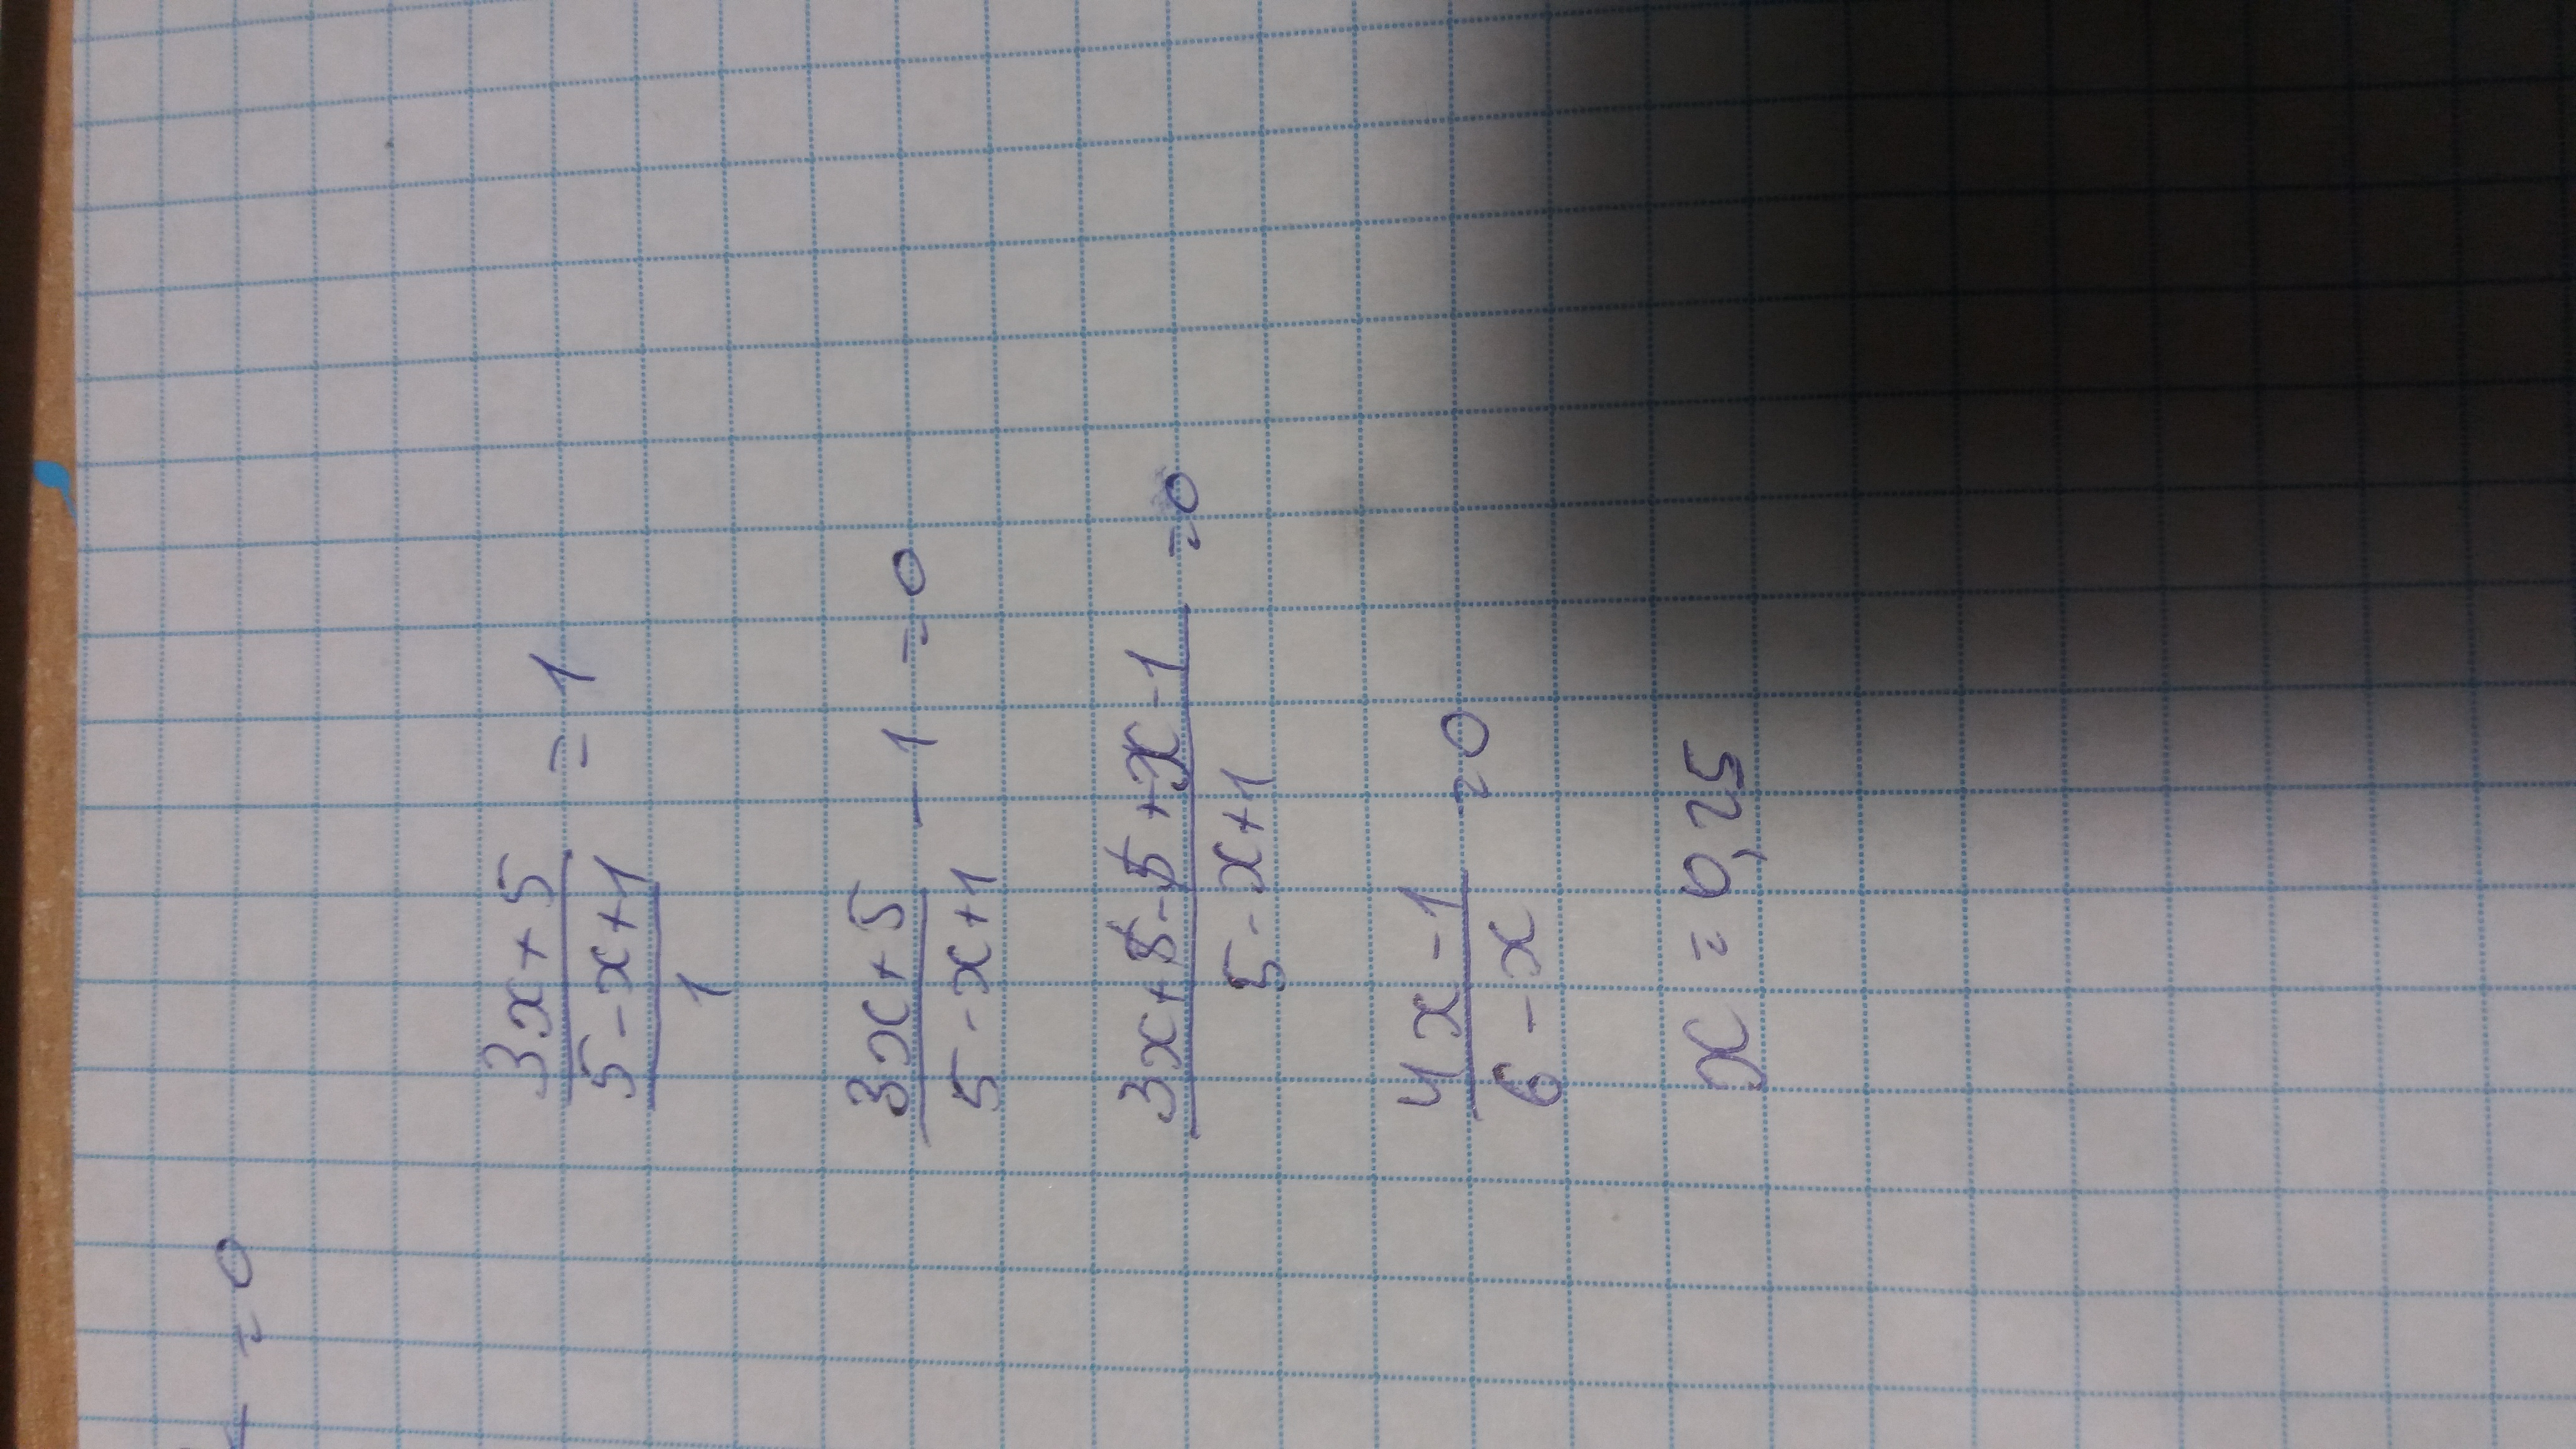 = 0
3x + 5
5 - x + 1 = 1
1
3x + 5
5 - x + 1 — 1 = 0
3x + 5 - 5 + x - 1
5 - x + 1 = 0
4x - 1
6 - x = 0
x = 0,25